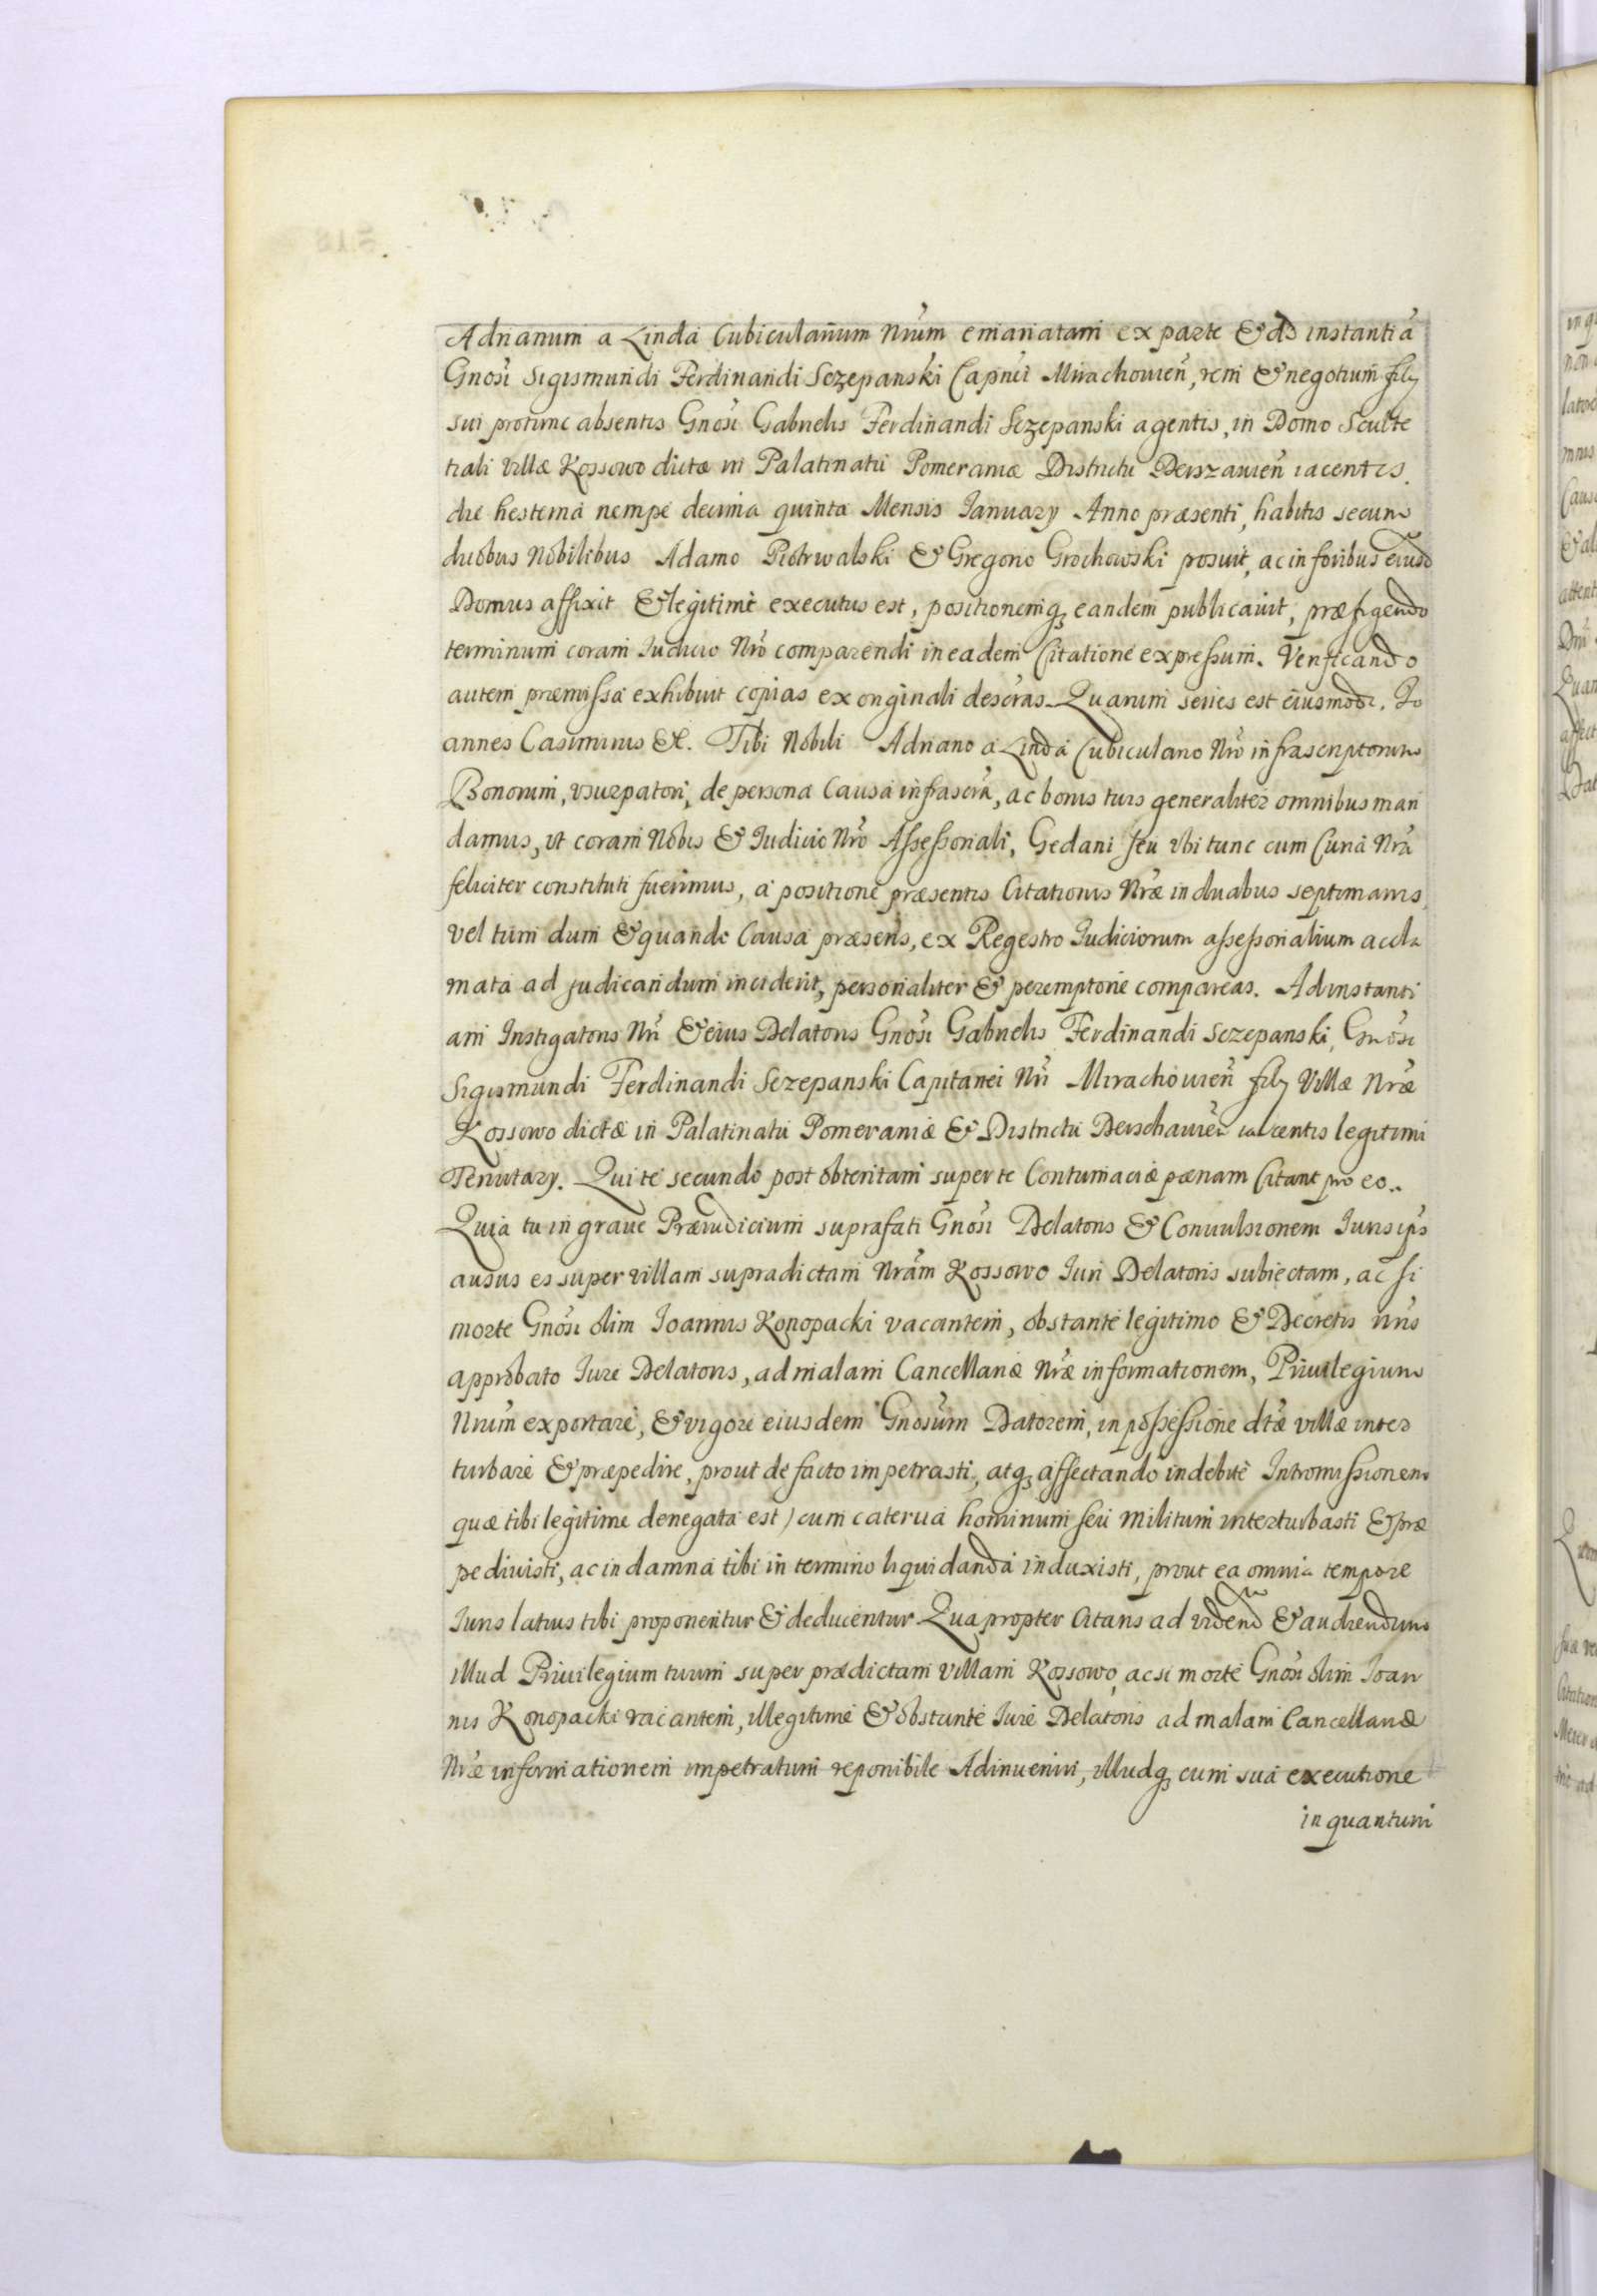 Adrianum a Linda Cubicularium Nrum emanatam ex parte & ad instantia
Gnosi Sigismundi Ferdinandi Sczepanski Capnei Mirachouien, rem & negotium filij
sui protunc absentis Gnosi Gabrielis Ferdinandi Sczepanski agentis, in Domo Sculte
tiali Villæ Kossowo dictæ in Palatinatu Pomeraniæ Districtu Derszauien iacentis
die hesterna nempe decima quinta Mensis January Anno præsenti, habitis secum
duobus Nobilibus Adamo Piotrwalski & Gregorio Grochowski posuit, ac in foribus eiusd
Domus affixit & legitime executus est, positionemq eandem publicauit, præfigendo
terminum coram Iudicio Nro comparendi in eadem Citatione expressum. Verificando
autem præmissa exhibuit copias ex originali descras. Quarum series est eiusmodi. Jo
annes Casimirus &c. Tibi Nobili Adriano a Linda Cubiculario Nro infrascriptorum
Bonorum, vsurpatori, de persona Causa infrascra, ac bonis tuis generaliter omnibus man
damus, vt coram Nobis & Iudicio Nro Assessoriali, Gedani seu vbi tunc cum Curia Nra
feliciter constituti fuerimus, a positione præsentis Citationis Nræ in duabus septimanis,
vel tum dum & quando Causa præsens, ex Regestro Iudiciorum assessorialium accla
mata ad judicandum inciderit, personaliter & peremptorie compareas. Ad instanti
am Instigatoris Nri & eius Delatoris Gnosi Gabrielis Ferdinandi Sczepanski, Gnosi
Sigismundi Ferdinandi Sczepanski Capitanei Nri Mirachouien filij Villæ Nræ
Kossowo dictæ in Palatinatu Pomeraniæ & Districtu Derschauien iacentis legitimi
Tenutary. Qui te secundo post obtentam super te Contumaciæ pænam Citant pro eo..
Quia tu in graue Præiudicium suprafati Gnosi Delatoris & Conuulsionem Iuris ips
ausus es super villam supradictam Nram Kossowo Iuri Delatoris subiectam, ac si
morte Gnosi olim Joannis Konopacki vacantem, obstante legitimo & Decretis nris
approbato Iure Delatoris, ad malam Cancellariæ Nræ informationem, Priuilegium
Nrum exportare, & vigore eiusdem Gnosum Datorem, in possessione dtæ villæ inter
turbare & præpedire, prout de facto impetrasti, atq affectando indebite Intromissionem
quæ tibi legitime denegata est) cum caterua hominum seu militum interturbasti & præ
pediuisti, ac in damna tibi in termino liquidanda induxisti, prout ea omnia tempore
Iuris latius tibi proponentur & deducentur. Quapropter Citaris ad vidend & audiendum
illud Priuilegium tuum super prædictam villam Kossowo, ac si morte Gnosi olim Joan
nis Konopacki vacantem, illegitime & obstante Iure Delatoris ad malam Cancellariæ
Nræ informationem impetratum reponibile Adinueniri, illudq cum sua executione
in quantum